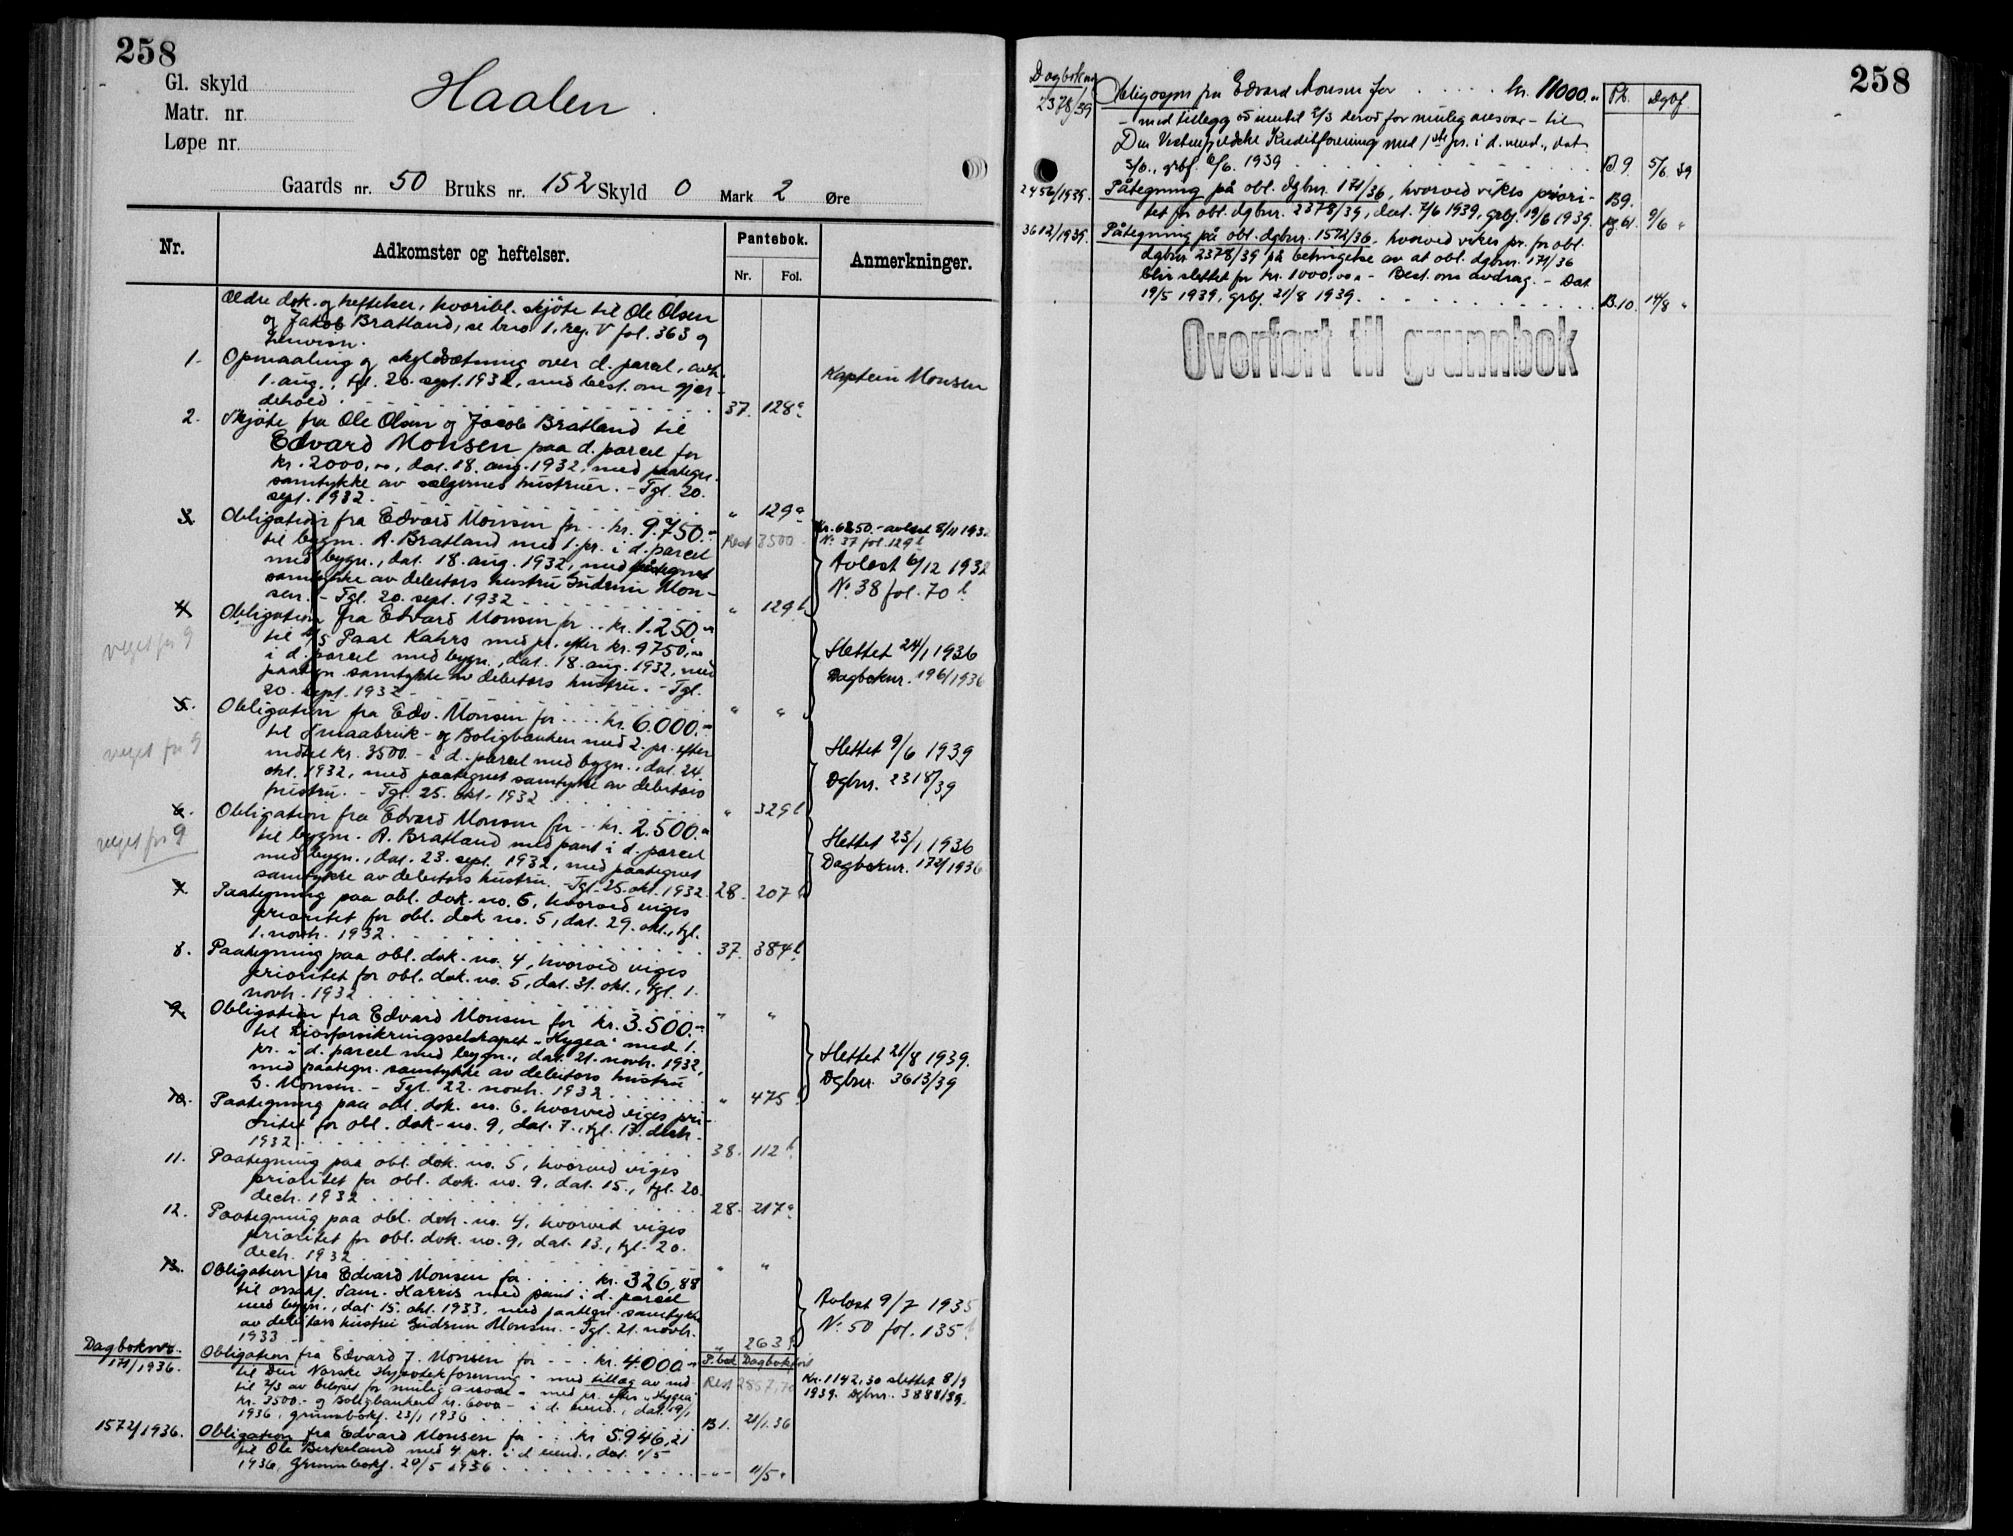 258
Gl. skyld
Haalen.
Matr. nr.
Løpe nr.
Gaards nr. 50 Bruks nr. 152 Skyld 0 Mark 2 Øre
Nr. Adkomster og heftelser. Pantebok. Anmerkninger.
Nr. Fol.
Ældre dok. og heftelser, hvoribl. skjøte til Ole Olsen
og Jakob Bratland, se bno 1, reg. V fol. 363 og
1. Opmaaling og skyldsætning over d. parcel, avh.
1. aug., tgl. 20. sept. 1932, med best. om gjær-
dehold. 37. 128a
Kaptein Monsen
2. Skjøte fra Ole Olsen og Jacob Bratland til
Edvard Monsen paa d. parcel for
kr. 2000,00, dat. 18. aug. 1932, med paategn.
samtykke av sælgernes hustruer. - Tgl. 20.
sept. 1932. " 129a
3. Obligation fra Edvard Monsen for .. kr. 9.750.-
til bygm. A. Bratland med 1. pr. i d. parcel
med bygn., dat. 18. aug. 1932, med påtegnet
samtykke av debitors hustru Gudrun Mon-
sen. - Tgl. 20. sept. 1932 " 129b
Rest 3500
Kr. 6250.- avlest 8/11 1932
No 37 fol. 129b
Avlest 6/12 1932
No 38 fol. 70b
4. Obligation fra Edvard Monsen for .. kr. 1.250,-
til A/S Paal Kahrs med pr. efter kr. 9750,00
i d. parcel med bygn., dat. 18. aug. 1932, med
paategn. samtykke av debitors hustru. - Tgl.
20. sept. 1932 - " "
veget for 9
Slettet 24/1 1936
Dagboknr. 196/1936
5. Obligation fra Edv. Monsen for .... kr. 6.000.-
til Smaabruk- og Boligbanken med 2. pr. efter
indtil kr. 3500.- i d. parcel med bygn., dat. 24.
okt. 1932, med paategnet samtykke av debitors
hustru. - Tgl. 25. okt. 1932 " 329b
veget for 9
Slettet 9/6 1939
Dgbnr. 2318/39
6. Obligation fra Edvard Monsen for .. kr. 2.500.-
til bygm. A. Bratland med pant i d. parcel
med bygn., dat. 23. sept. 1932, med paategnet
samtykke av debitors hustru. - Tgl. 25. okt. 1932. 28. 207b
veget for 9
Slettet 23/1 1936
Dagboknr. 172/1936
7. Paategning paa obl. dok. no. 6, hvorved viges
prioritet for obl. dok. no. 5, dat. 29. okt., tgl.
1. novb. 1932. 37. 384b
8. Paategning paa obl. dok. no. 4, hvorved viges
prioritet for obl. dok. no. 5, dat. 31. okt., tgl. 1.
novb. 1932 " "
9. Obligation fra Edvard Monsen for kr. 3.500.-
til Livsforsikringsselskapet "Hygea" med 1.
pr. i d. parcel med bygn., dat. 21. novb. 1932,
med paategn. samtykke av debitors hustru
G. Monsen. - Tgl. 22. novb. 1932 " 475b
Slettet 21/8 1939.
Dgbnr. 3613/39
10. Paategning paa obl. dok. no. 6, hvorved viges pri-
oritet for obl. dok. no. 9, dat. 7., tgl. 13. decb.
1932 38. 112b
11. Paategning paa obl. dok. no. 5, hvorved viges
prioritet for obl. dok. no. 9, dat. 15., tgl. 20.
decb. 1932 28. 217a
12. Paategning paa obl. dok. no. 4, hvorved viges
prioritet for obl. dok. no. 9, dat. 13., tgl. 20.
decb. 1932 " "
13. Obligation fra Edvard Monsen for .... kr. 326,88
til orsakf. Sam. Harris med pant i d. parcel
med bygn., dat. 15. okt. 1933, med paategn. samtykke
av debitors hustru Gudrun Monsen. - Tgl. 21. novb.
1933 " 263b
Avlest 9/7 1935
No 50 fol. 135b
Dagboknr. 171/1936.
P.bok Dagbokført
Obligation fra Edvard J. Monsen for ... kr. 4000.-
til Den Norske Hypotekforening - med tillæg av ind-
til 2/3 av beløpet for mulig ansvar - med pr. efter "Hygea"
kr. 3500.- og Boligbanken kr. 6000.- i d. eiend., dat. 19/1
1936, grunnbokf. 23/1 1936 B1. 21/1.36
Rest 2857,70
Kr. 1142.30 slettet 8/9
1939. Dgbnr. 3888/39.
1572/1936. Obligation fra Edvard Monsen for ... kr 5.946,21
til Ole Birkeland med 4. pr. i d. eiend., dat. 1/5
1936, grunnbokf. 20/5 1936 - " - 11/5 "
258
Dagboknr
2378/39 Obligasjon fra Edvard Monsen for ..... kr. 11000.-
Pb. Dgbf
- med tillegg av inntil 2/3 derav for mulig ansvar - til
Den Vestenfjeldske Kreditforening med 1ste pr. i d. eiend., dat
5/6., grbf. 6/6. 1939 B.9. 5/6. 39
2456/1939. Påtegning på obl. dgbnr. 171/36, hvorved vikes priori-
tet for obl. dgbnr. 2378/39, dat. 7/6 1939, grbf. 19/6 1939. B9. 9/6 "
3612/1939. Påtegning på obl. dgbnr. 1572/36, hvorved vikes pr. for obl.
dgbnr. 2378/39 på betingelse av at obl. dgbnr. 171/36
blir slettet for kr. 1000,00. - Best. om avdrag. - Dat.
19/5 1939, grbf. 21/8 1939. B.10. 14/8 "
Overført til grunnbok